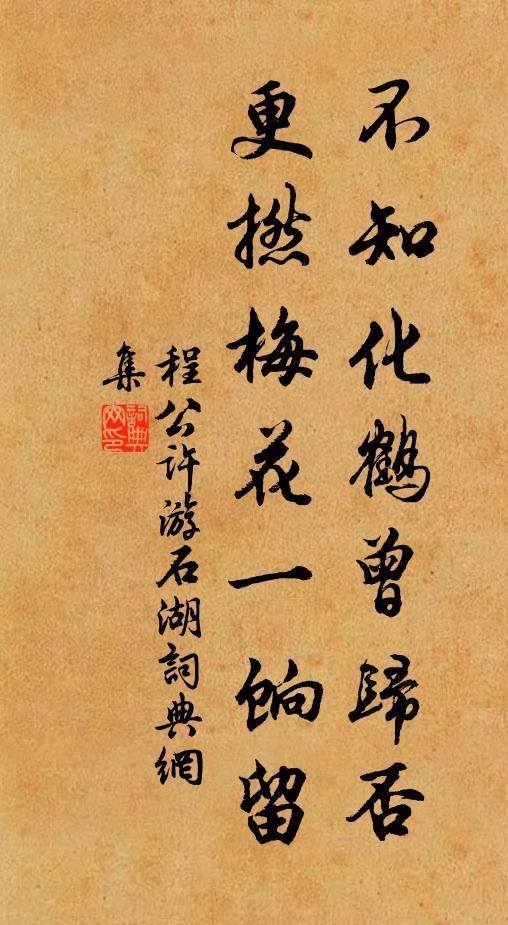 不知化鶴曾歸否
更撚梅花一餉留
程公許游石湖詞典網
集
詞典网印